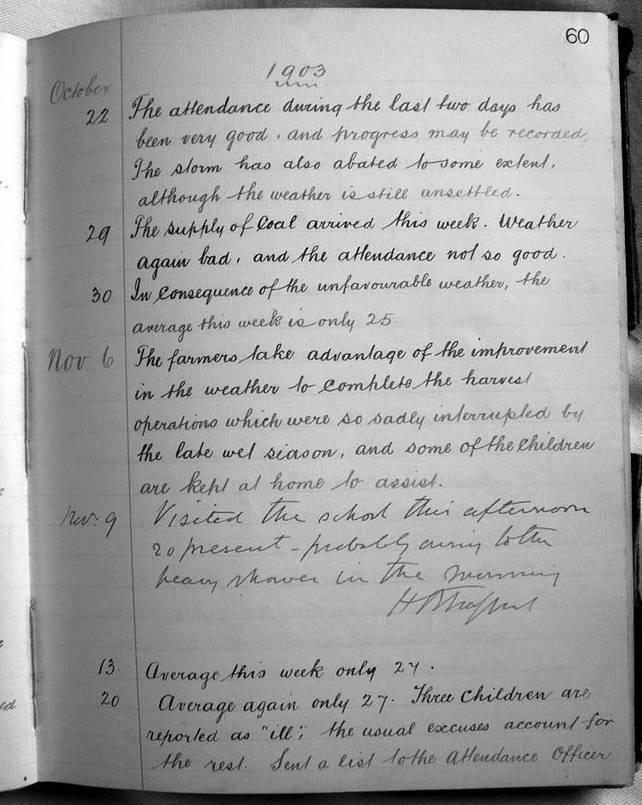 60
1903
October
22 The attendance during the last two days has
been very good, and progress may be recorded.
The storm has also abated to some extent,
although the weather is still unsettled.
29 The supply of Coal arrived this week. Weather
again bad, and the attendance not so good.
30 In Consequence of the unfavourable weather, the
average this week is only 25.
Nov 6 The farmers take advantage of the improvement
in the weather to Complete the harvest
operations which were so sadly interrupted by
the late wet season, and some of the Children
are kept at home to assist.
Nov. 9 Visited the school this afternoon
20 present - probably owing to the
heavy shower in the morning
13. Average this week only 27.
20 Average again only 27. Three Children are
reported as "ill"; the usual excuses account for
the rest. Sent a list to the Attendance Officer